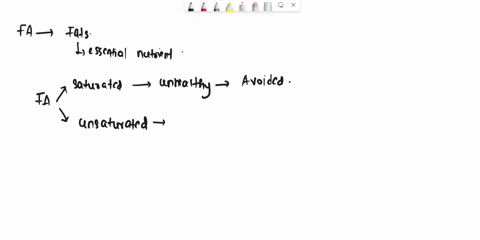 FA → Fats.
↳ essential nutrient
FA
saturated → unhealthy → Avoided.
unsaturated →